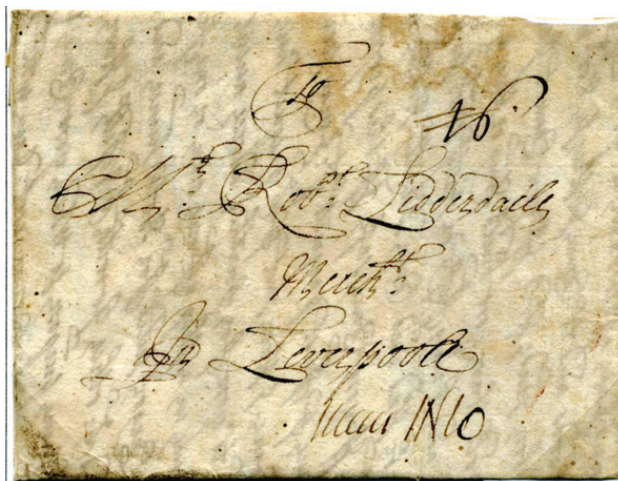 To
Mr. Robt. Lidderdaile
Mercht.
In Leverpoole